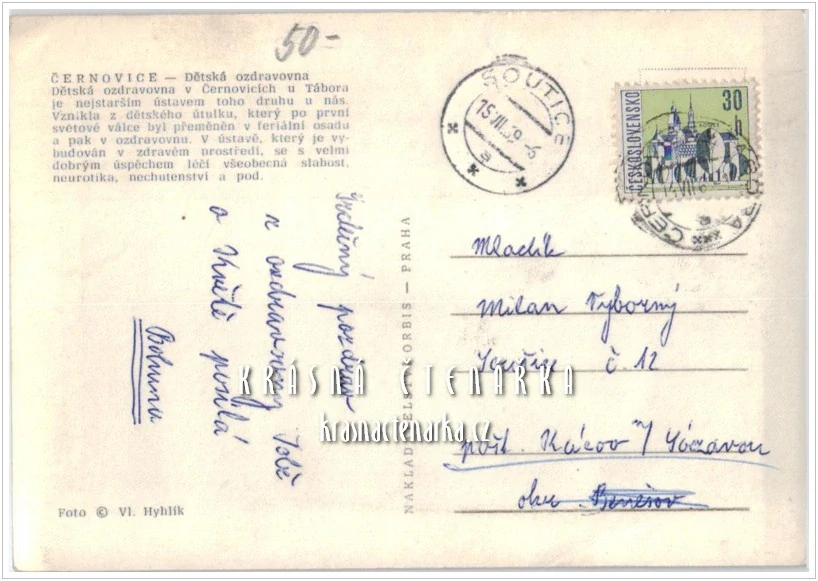 50-
ČERNOVICE — Dětská ozdravovna
Dětská ozdravovna v Černovicích u Tábora
je nejstarším ústavem toho druhu u nás.
Vznikla z dětského útulku, který po první
světové válce byl přeměněn v feriální osadu
a pak v ozdravovnu. V ústavě, který je vy-
budován v zdravém prostředí, se s velmi
dobrým úspěchem léčí všeobecná slabost,
neurotika, nechutenství a pod.
Srdečný pozdrav
z ozdravovny Tobě
a Květě posílá
Bohuna
Foto © Vl. Hyhlík
NAKLADATELSTVÍ ORBIS — PRAHA
SOUTICE
15.VII.69-6
a
ČESKOSLOVENSKO
30
h
Mladík
Milan Výborný
Soutice č. 12
pošt. Kácov n/ Sázavou
okr. Benešov
KRÁSNÁ ČTENÁRKA
krasnactenarka.cz